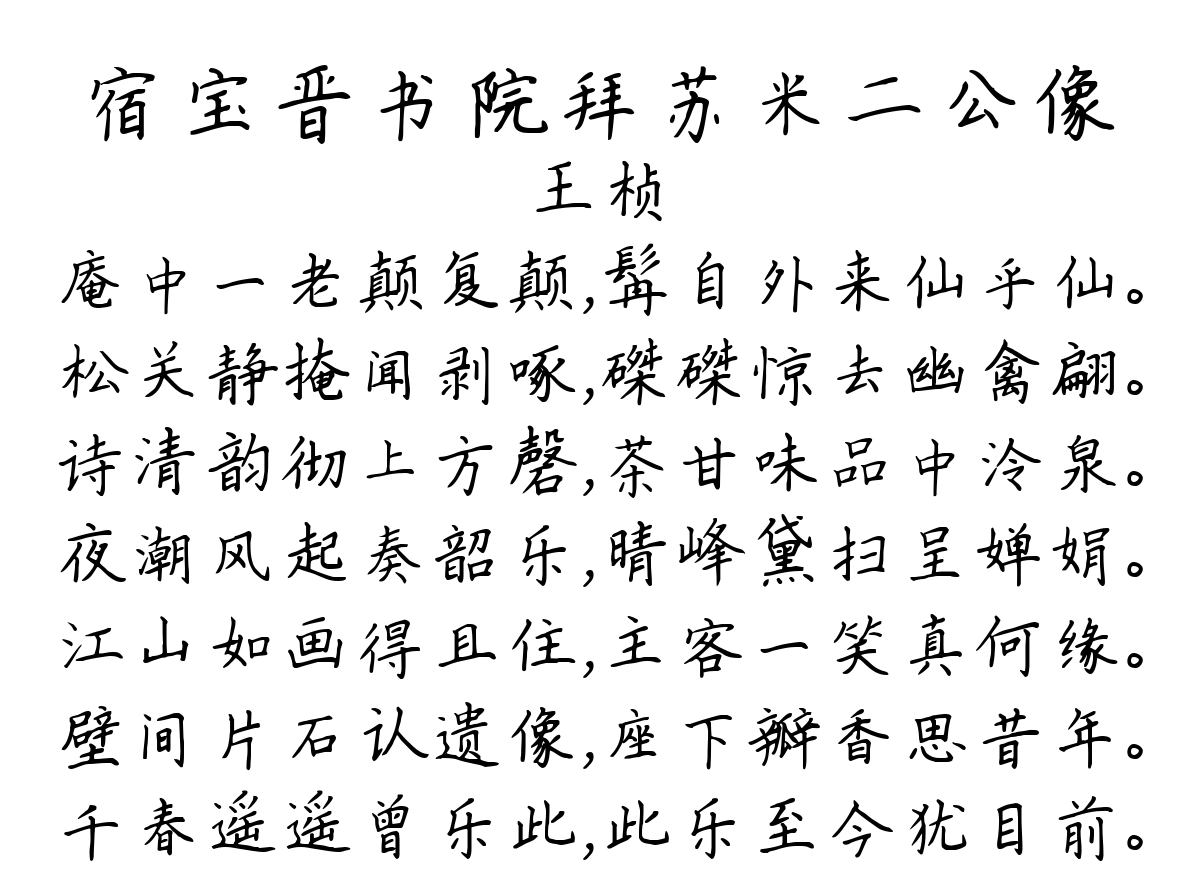 宿宝晋书院拜苏米二公像
王桢
庵中一老颠复颠,髯自外来仙乎仙。
松关静掩闻剥啄,磔磔惊去幽禽翩。
诗清韵彻上方磬,茶甘味品中泠泉。
夜潮风起奏韶乐,晴峰黛扫呈婵娟。
江山如画得且住,主客一笑真何缘。
壁间片石认遗像,座下瓣香思昔年。
千春遥遥曾乐此,此乐至今犹目前。